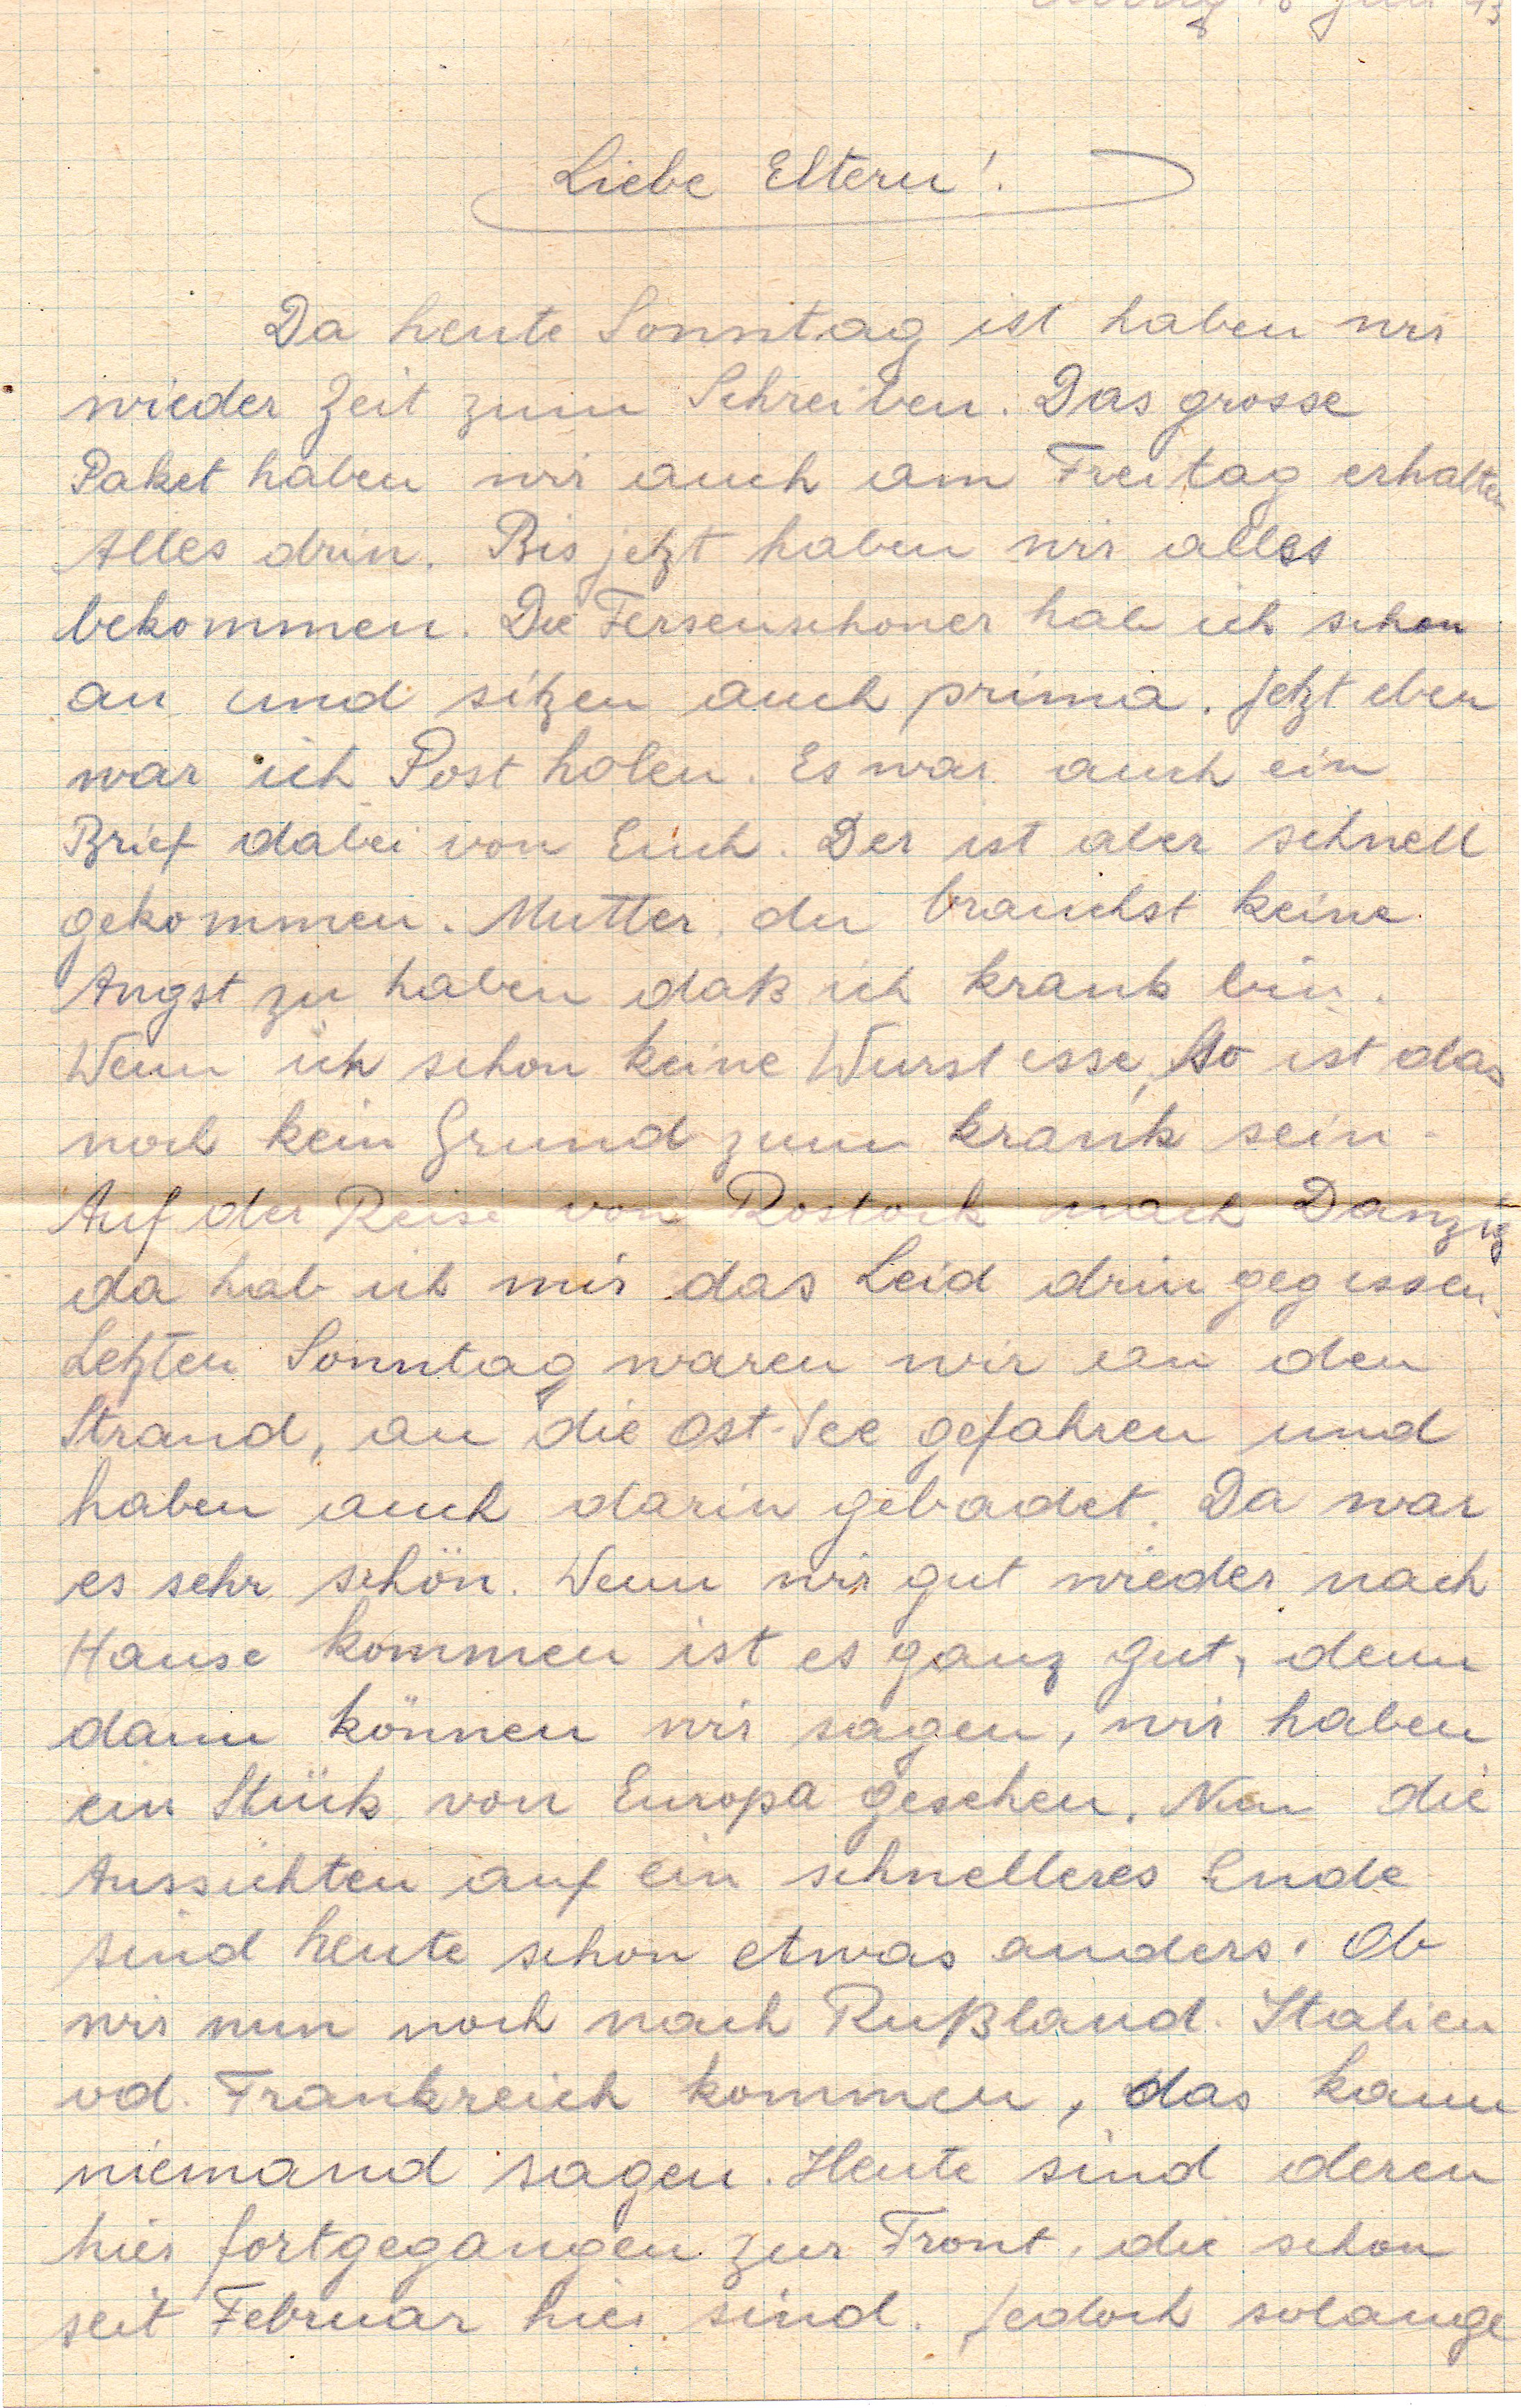 Juli 43
Liebe Eltern!
Da heute Sonntag ist haben wir
wieder Zeit zum Schreiben. Das grosse
Paket haben wir auch am Freitag erhalten
Alles drin. Bis jetzt haben wir alles
bekommen. Die Fersenschoner hab ich schon
an und sitzen auch prima. Jetzt eben
war ich Post holen. Es war auch ein
Brief dabei von Euch. Der ist aber schnell
gekommen. Mutter, du brauchst keine
Angst zu haben daß ich krank bin.
Wenn ich schon keine Wurst esse, so ist das
noch kein Grund zum krank sein.
Auf der Reise von Rostock nach Danzig
da hab ich mir das Leid dringegessen.
Letzten Sonntag waren wir an den
Strand, an die Ost-See gefahren und
haben auch darin gebadet. Da war
es sehr schön. Wenn wir gut wieder nach
Hause kommen ist es ganz gut, denn
dann können wir sagen, wir haben
ein Stück von Europa gesehen. Nun die
Aussichten auf ein schnelleres Ende
sind heute schon etwas anders. Ob
wir nun noch nach Rußland. Italien
od. Frankreich kommen, das kann
niemand sagen. Heute sind deren
hier fortgegangen zur Front, die schon
seit Februar hier sind. Jedoch solange